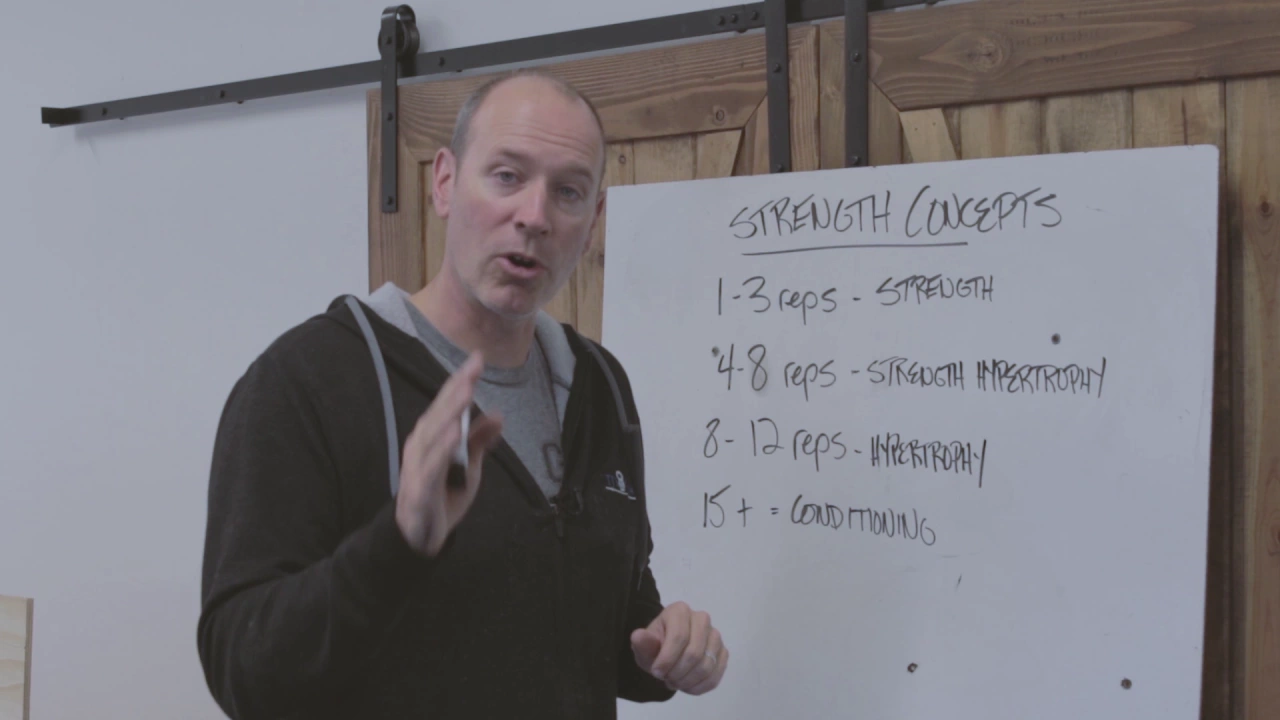 STRENGTH CONCEPTS
1-3 reps - STRENGTH
4-8 reps - STRENGTH HYPERTROPHY
8-12 reps - HYPERTROPHY
15+ = CONDITIONING